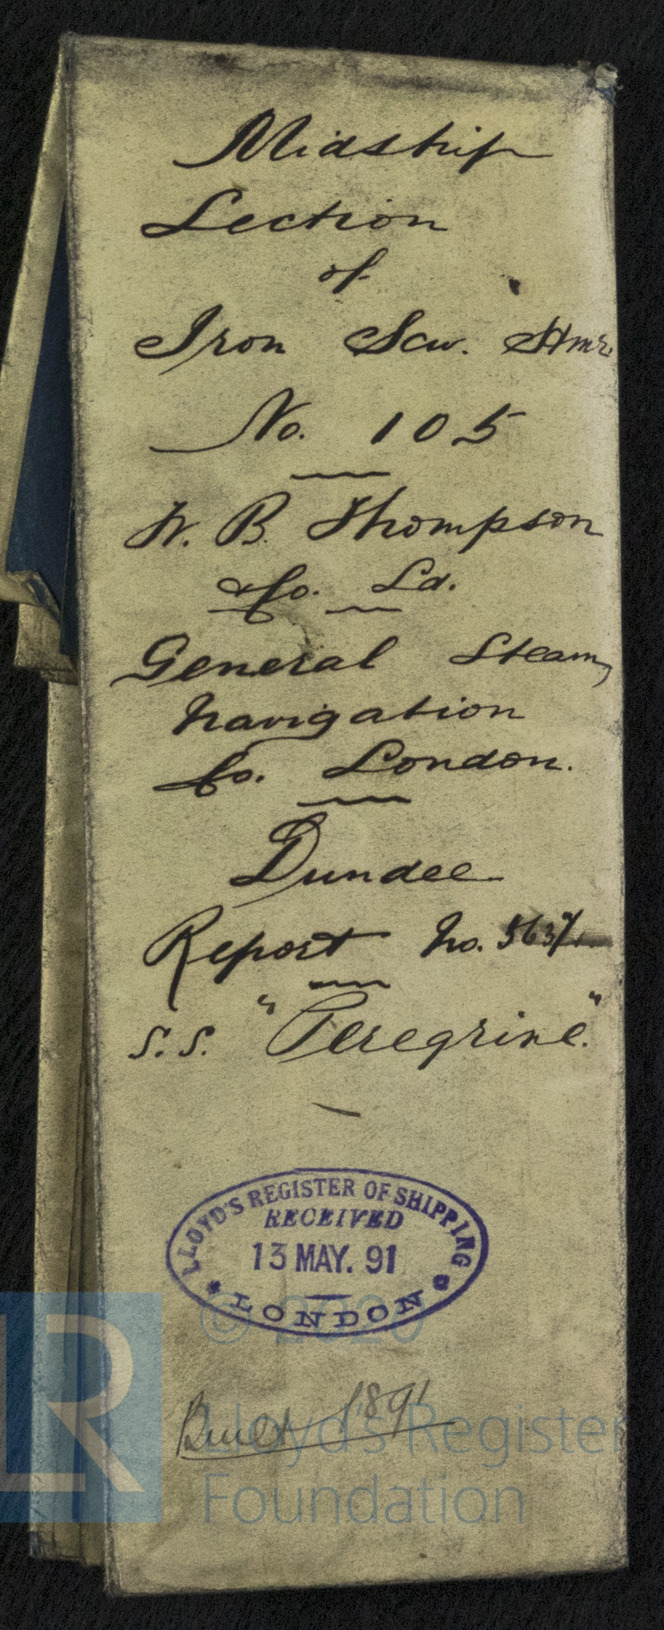 Midship
Section
of
Iron Scw. Stmr.
No. 105
W. B. Thompson
& Co. Ld.
General Steam
Navigation
Co. London.
Dundee
Report No. 5637
S.S. "Peregrine"
LLOYD'S REGISTER OF SHIPPING
RECEIVED
13 MAY. 91
LONDON
© 2020
Built 1891
LR
Lloyd's Register
Foundation